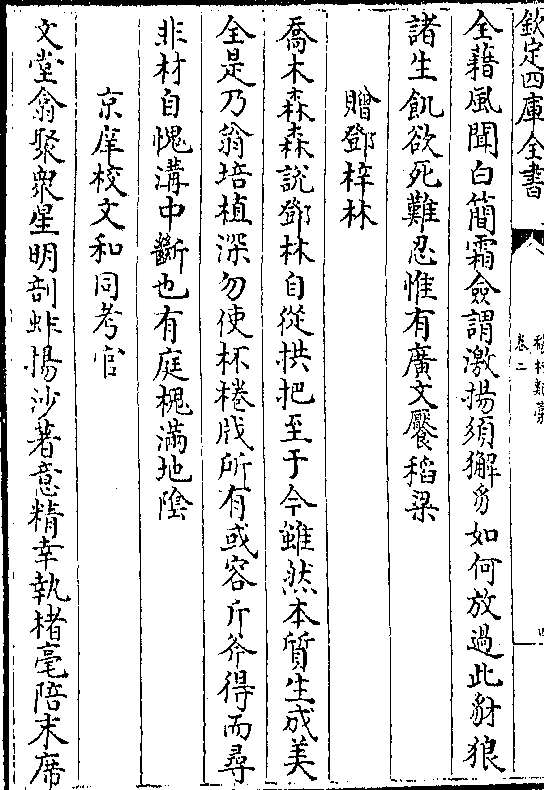 欽定四庫全書
卷二
全藉風聞白簡霜僉謂激揚須獬豸如何放過此豺狼
諸生飢欲死難忍惟有廣文饜稻梁
贈鄧梓林
喬木森森說鄧林自從拱把至于今雖然本質生成美
全是乃翁培植深勿使杯棬戕所有或容斤斧得而尋
非材自愧溝中斷也有庭槐滿地陰
京庠校文和同考官
文堂翕聚衆星明剖蚌揚沙著意精幸執楮毫陪末席